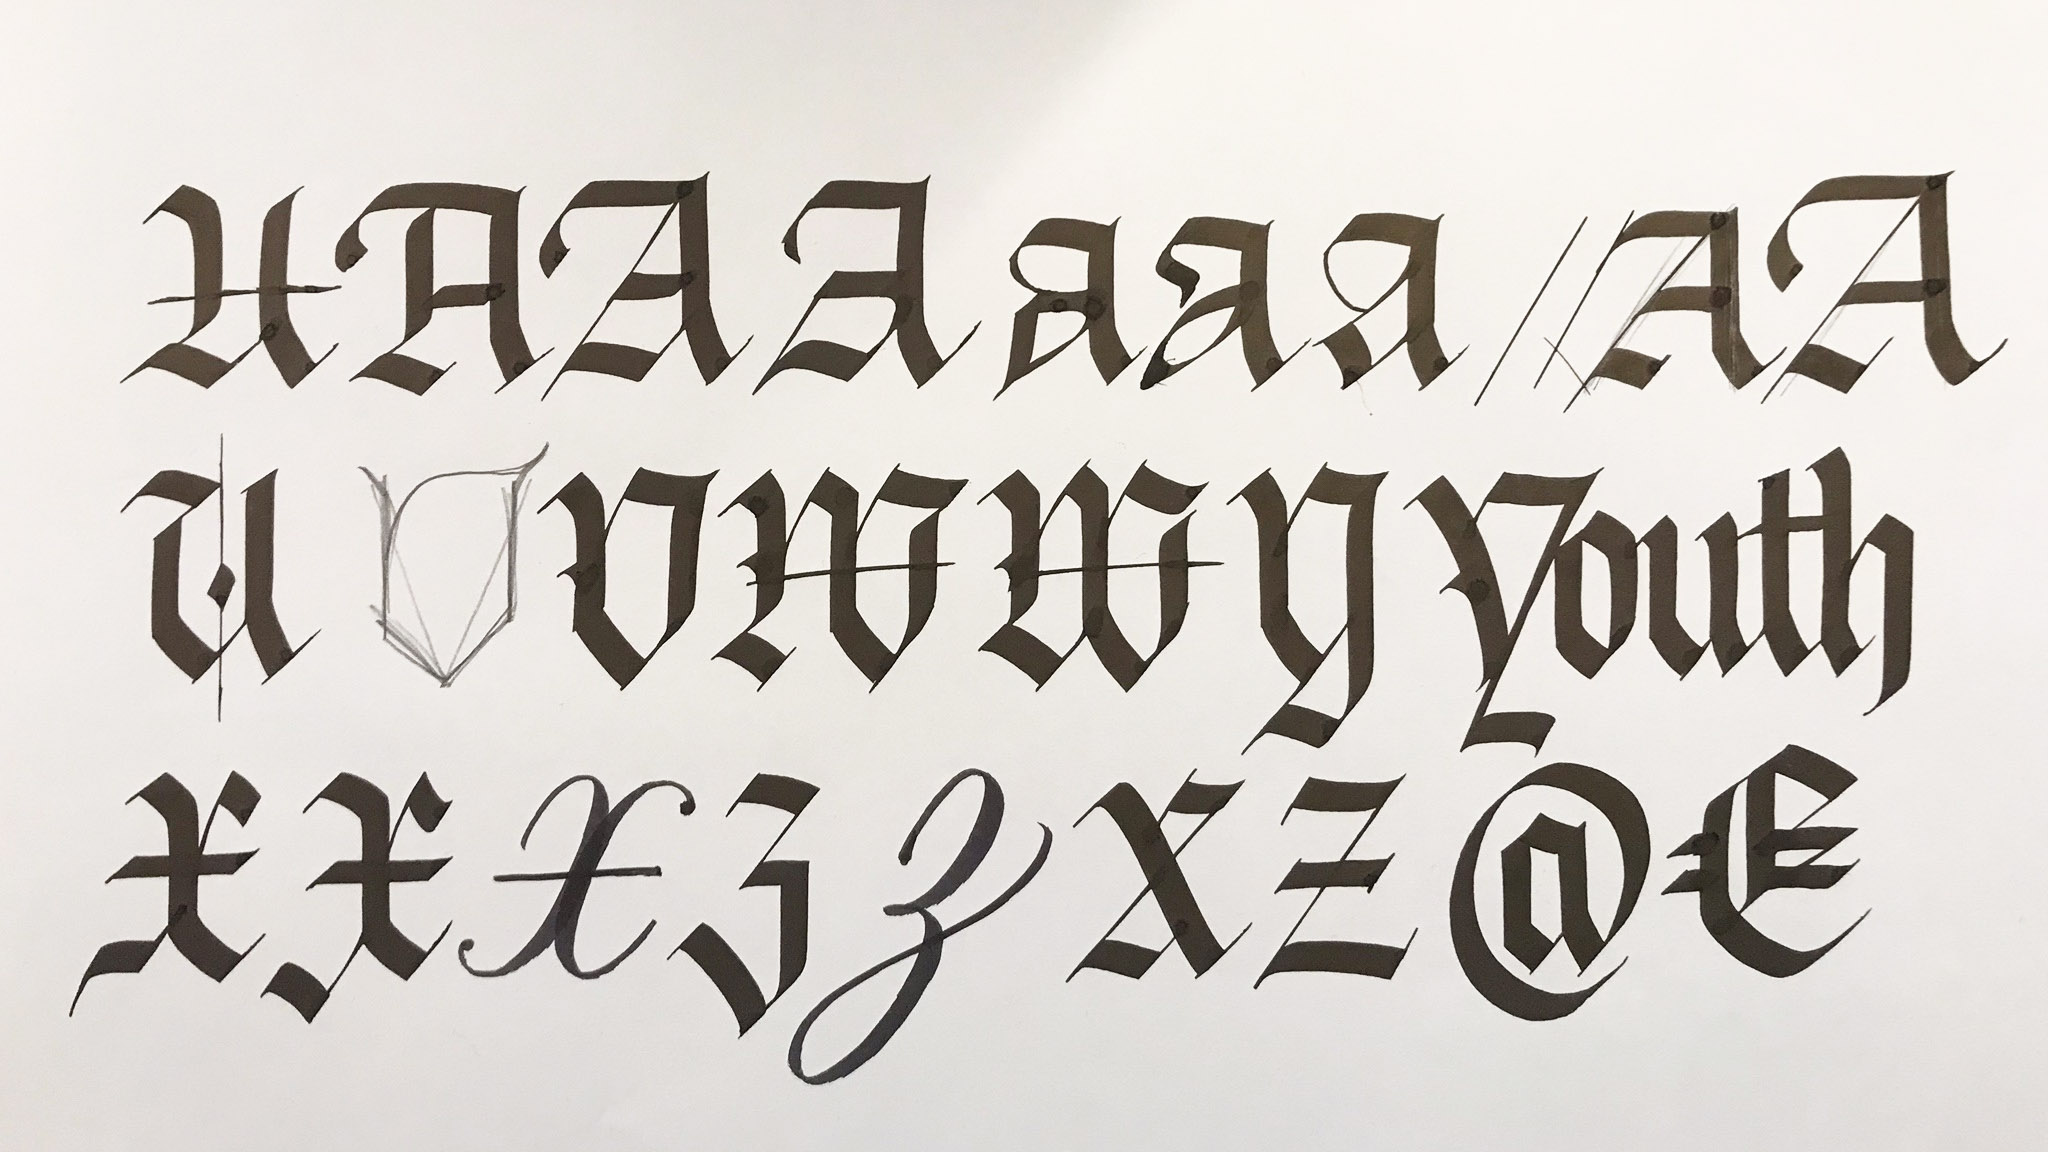 A A A A A A A // A A
U V W W Y Youth
X X X Z Z X Z @ E